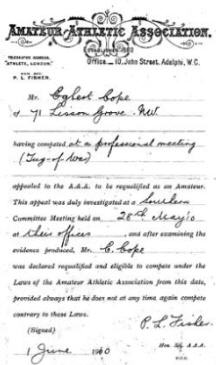 AMATEUR ATHLETIC ASSOCIATION.
TELEGRAPHIC ADDRESS,
"ATHLETE, LONDON."
Office 10, John Street, Adelphi, W.C.
HON. SEC.
P. L. FISHER.
Mr. Egbert Cope
of 71 Lisson Grove. N.W.
having competed at a professional meeting
(Tug-of-War)
appealed to the A.A.A. to be requalified as an Amateur.
This appeal was duly investigated at a Southern
Committee Meeting held on 28th May '10
at their offices and after examining the
evidence produced, Mr. E. Cope
was declared requalified and eligible to compete under the
Laws of the Amateur Athletic Association from this date,
provided always that he does not at any time again compete
contrary to those Laws.
(Signed) P. L. Fisher
Hon. Sec. A.A.A.
1 June 1910